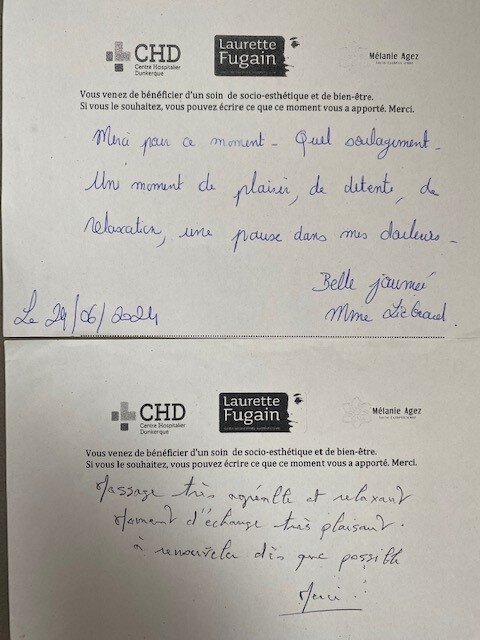 CHD
Centre Hospitalier
Dunkerque
Laurette
Fugain
Mélanie Agez
Vous venez de bénéficier d'un soin de socio-esthétique et de bien-être.
Si vous le souhaitez, vous pouvez écrire ce que ce moment vous a apporté. Merci.
Merci pour ce moment - Quel soulagement -
Un moment de plaisir, de détente, de
relaxation, une pause dans mes douleurs -
Belle journée
Mme
Le 24/06/2024
CHD
Centre Hospitalier
Dunkerque
Laurette
Fugain
Mélanie Agez
Vous venez de bénéficier d'un soin de socio-esthétique et de bien-être.
Si vous le souhaitez, vous pouvez écrire ce que ce moment vous a apporté. Merci.
Massage très agréable et relaxant
Moment d'échange très plaisant.
à renouveler dès que possible
Merci !